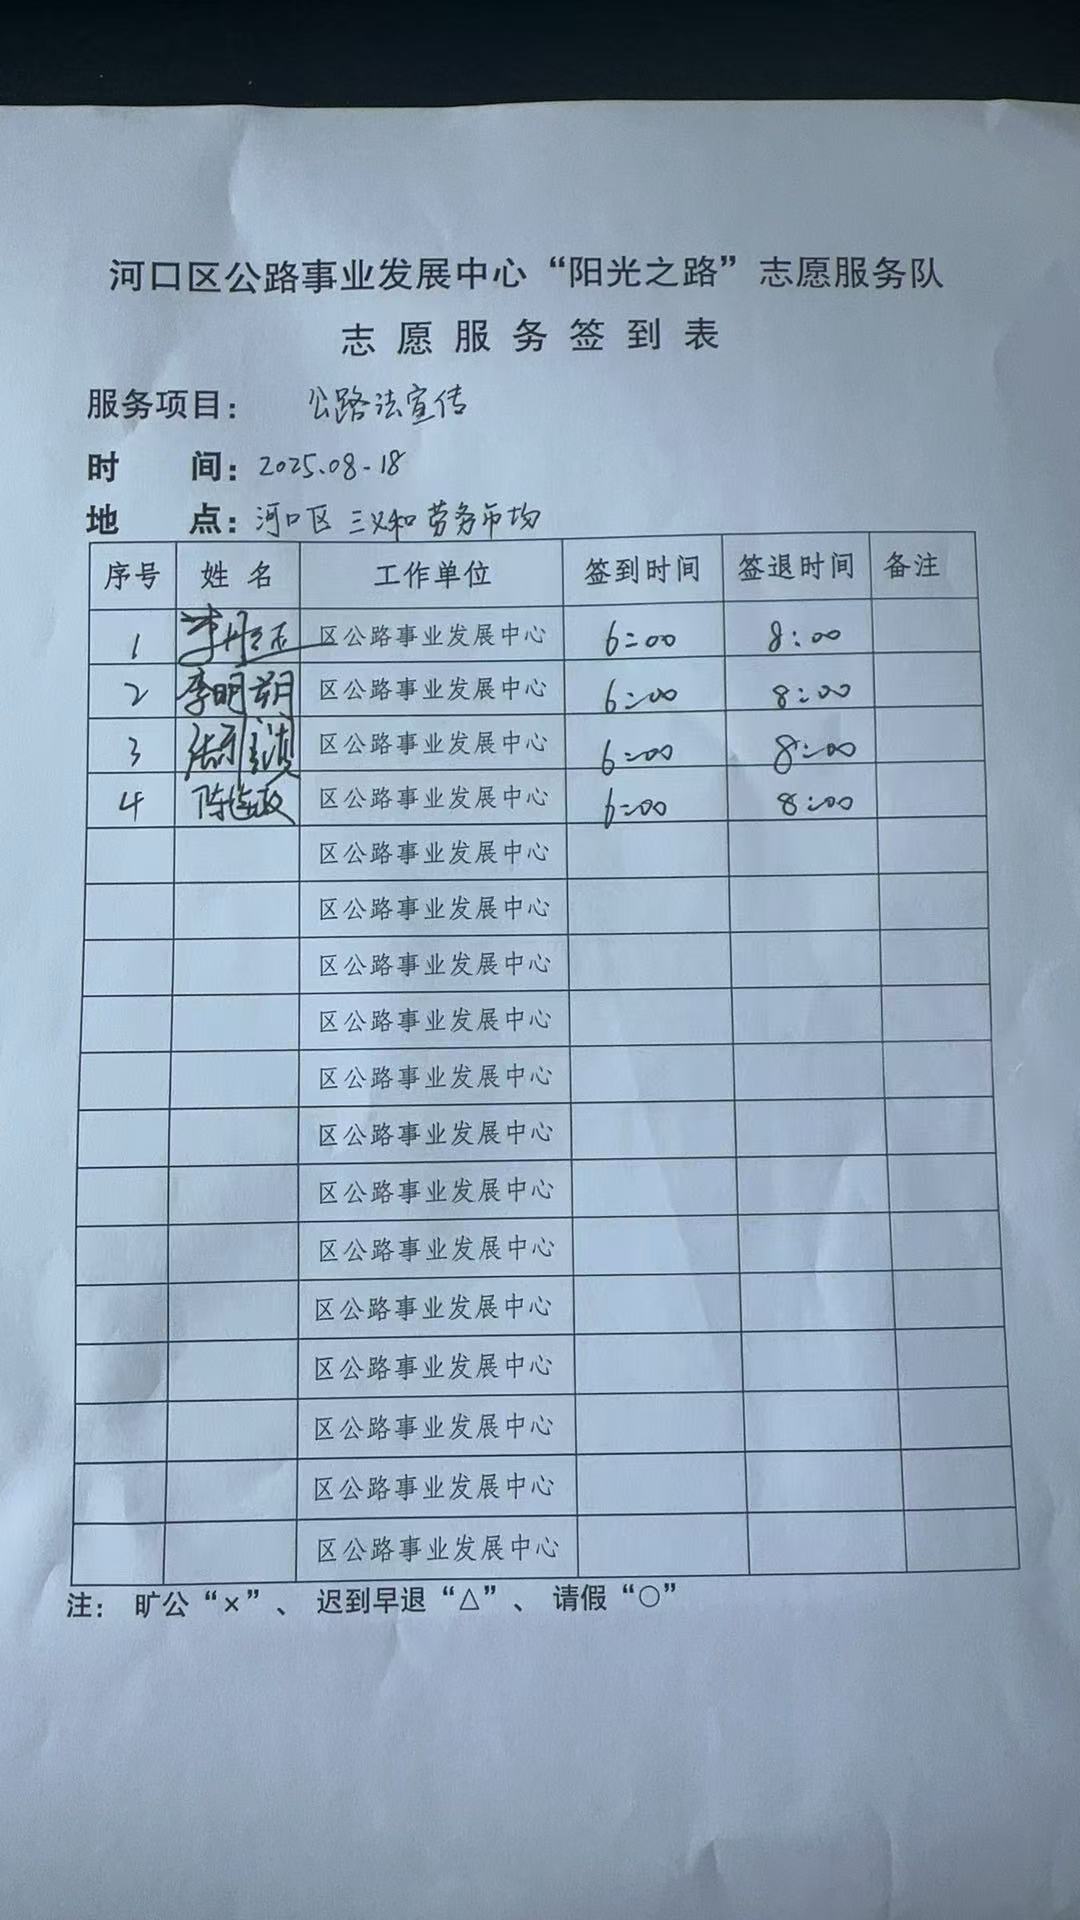 河口区公路事业发展中心“阳光之路”志愿服务队
志愿服务签到表
服务项目： 公路法宣传
时 间：2025.08-18
地 点：河口区 三义和 劳务市场
序号 姓名 工作单位 签到时间 签退时间 备注
1 李 区公路事业发展中心 6:00 8:00
2 李明朔 区公路事业发展中心 6:00 8:00
3 区公路事业发展中心 6:00 8:00
4 陈 区公路事业发展中心 6:00 8:00
区公路事业发展中心
区公路事业发展中心
区公路事业发展中心
区公路事业发展中心
区公路事业发展中心
区公路事业发展中心
区公路事业发展中心
区公路事业发展中心
区公路事业发展中心
区公路事业发展中心
区公路事业发展中心
区公路事业发展中心
区公路事业发展中心
注： 旷公“×”、 迟到早退“△”、 请假“○”